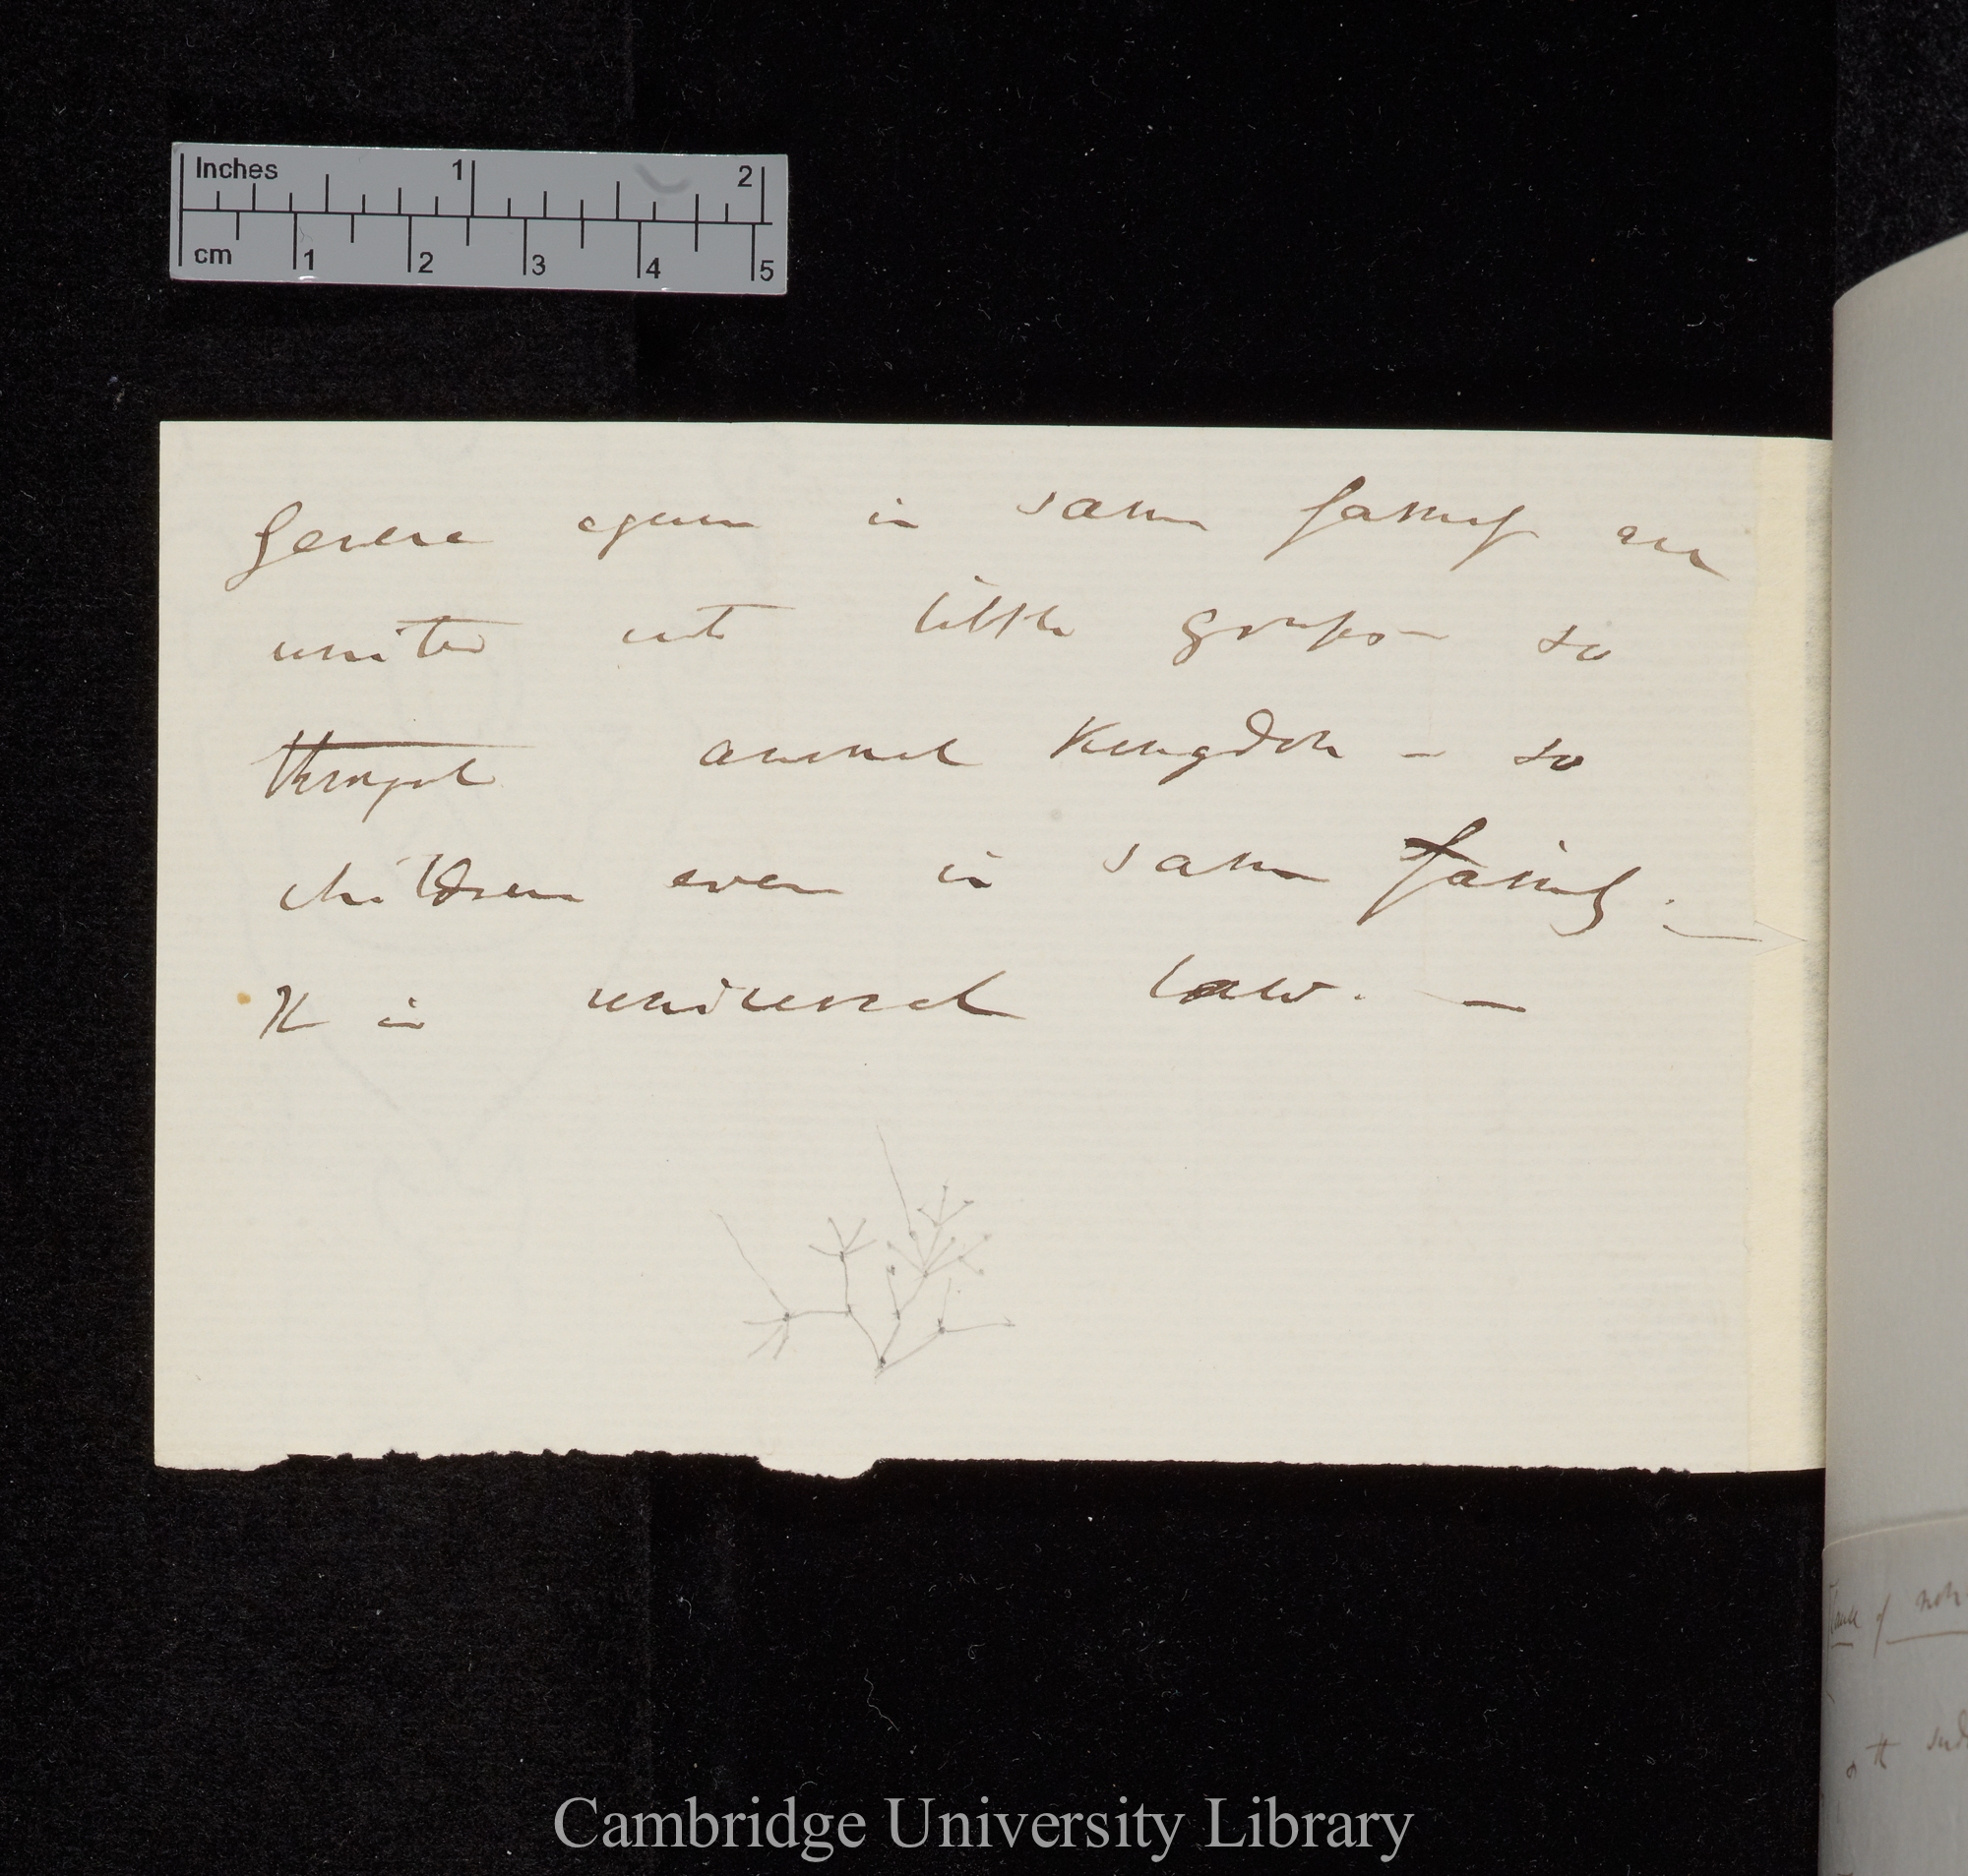 Inches 1 2
cm 1 2 3 4 5
Genera again in same family are
united into little groups — so
throughout animal Kingdom — so
children even in same family. —
It is universal law. —
of
Cambridge University Library